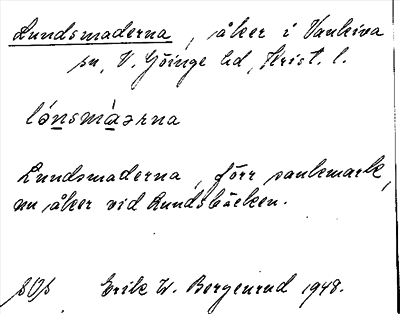 Lundsmaderna, åker i Vankiva
sn, V. Göinge hd, Krist. l.
lónsmàərna
Lundsmaderna, förr sankmark,
nu åker vid Lundsbäcken.
Erik W. Bergenrud 1948.